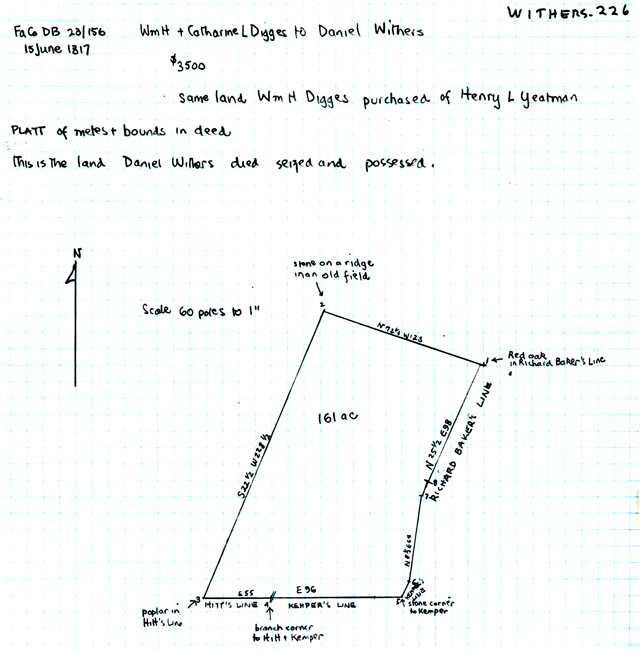 WITHERS-226
FaCo DB 20/156 WmH + Catharine L Digges to Daniel Withers
15 June 1817
$3500
same land Wm H Digges purchased of Henry L Yeatman
PLATT of metes + bounds in deed
This is the land Daniel Withers died seized and possessed.
N
stone on a ridge
in an old field
Scale 60 poles to 1"
2
N 72½ W 123
1
Red oak
in Richard Baker's Line
161 ac
S 22½ W 228½
N 25½ E 98
RICHARD BAKER'S LINE
7
3
E55
4
E 96
5
HITT'S LINE
KEMPER'S LINE
poplar in
Hitt's Line
branch corner
to Hitt + Kemper
stone corner
to Kemper